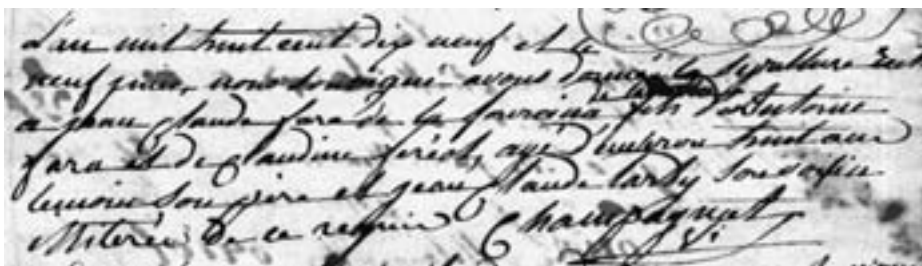 L'an mil huit cent dix neuf et le
neuf juin, nous soussigné avons donné la sepulture
a jean claude fara de la fils d'Antoine
fara et de claudine feréol, agé d'environ huit ans
temoins son père et jean claude tardy son voisin
illiterés de ce requis Champagnat